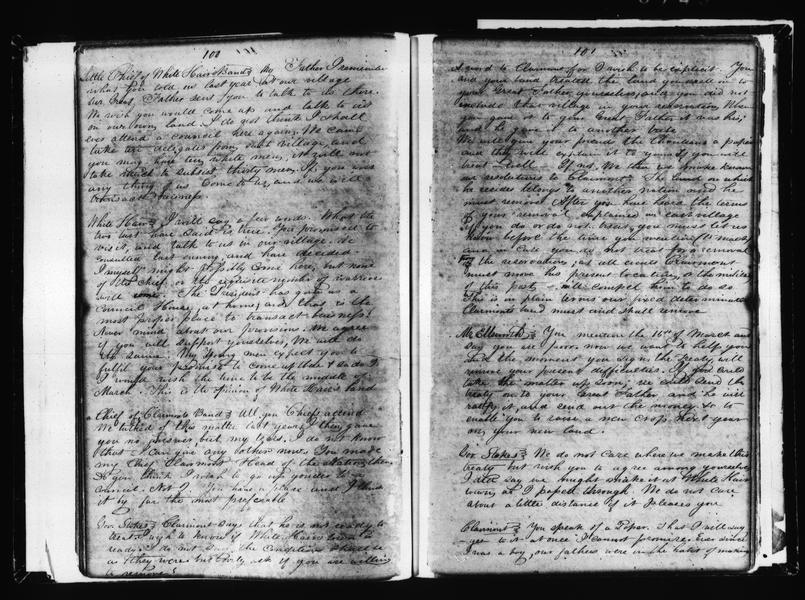 100
Little Chief of White Hairs Band } My Father I remember
what you told us last year at our village
our Great Father sent you to talk to us there.
We wish you would come up and talk to us
on our own land. I do not think I shall
ever attend a council here again. We came
take two delegates from each village, and
you may have ten white men, it will not
take much to subsist thirty men. If you want
any thing of us come to us, and we will
transact business

White Hair } I will say a few words. What the
two last have said is true. You promised to
visit, and talk to us in our village. We
consulted last evening, and have decided
I myself might possibly come here, but none
of the chiefs or the requisite number of warriors
will come. The President has given us a
Council House, at home, and that is the
most proper place to transact business.
Never mind about our provisions. We agree
if you will support yourselves, We will do
the same. My young men expect you to
fulfil your promise to come up
I would wish the time to be the middle of
March. This is the opinion of White Hairs band

a Chief of Clairmonts Band } All you Chiefs attend
We talked of this matter last year, I then gave
you no answer but my Yes. I do not know
that I can give any other now. You made
my Chief Clairmont Head of the Nation, then
do you think I wish to go up yonder to a
council. Not I. You have a place must I think
it by far the most preferable

Gov Stokes } Clairmont says that he is not ready to
treat. I wish to know if White Hairs town is
ready. I do not say the conditions shall be
as they were but only ask if you are willing
to remove?

101
A word to Clairmont for I wish to be explicit. You
and your band treated the land you sell in to
your Great Father, yourselves, and you did not
include that village in your reservation. When
you gave it to your Great Father it was his,
and he gave it to another tribe
We will give your friend the Chouteaus a paper
and they will explain it to you. If you will
treat well. If not, We then will make known
our resolutions to Clairmont. The land on which
he resides belongs to another nation and he
must remove. After you have heard the terms
of your removal explained in each village
if you do or do not treat, you must let us
know before the time you mention (16 March)
and in case you do not treat for a removal
the reservations, at all events Clairmont
must move his present location, or the military
of this post will compel him to do so
This is in plain terms our fixed determination
Clairmonts band must and shall remove

Mr Ellsworth } You mention the 16th of March and
say you are poor, now we want to help you
and the moment you sign the treaty will
remove your present difficulties. If you could
take the matter up soon, we could send the
treaty on to your Great Father and he will
ratify it, and send out the money, so to
enable you to raise a new crop next year
on your new land.

Gov Stokes } We do not care where we make this
treaty but wish you to agree among yourselves
I did say we might make it at White Hair
town, as I passed through. We do not care
about a little distance if it pleases you

Clairmont } You speak of a Paper. That I will say
yes to it at once I cannot promise. Ever since
I was a boy, our fathers were in the habit of making